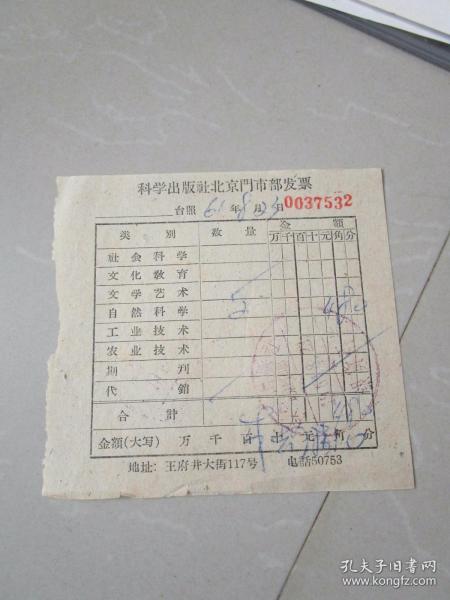 科学出版社北京門市部发票
台照 61年8月23日 0037532
类別 数量 金額
万千百十元角分
社会科学
文化教育
文学艺术
自然科学 5
工业技术
农业技术
期刊
代銷
合計
金額(大写) 万千百十元角分
地址:王府井大街117号 电話50753
孔夫子旧书网
www.kongfz.com